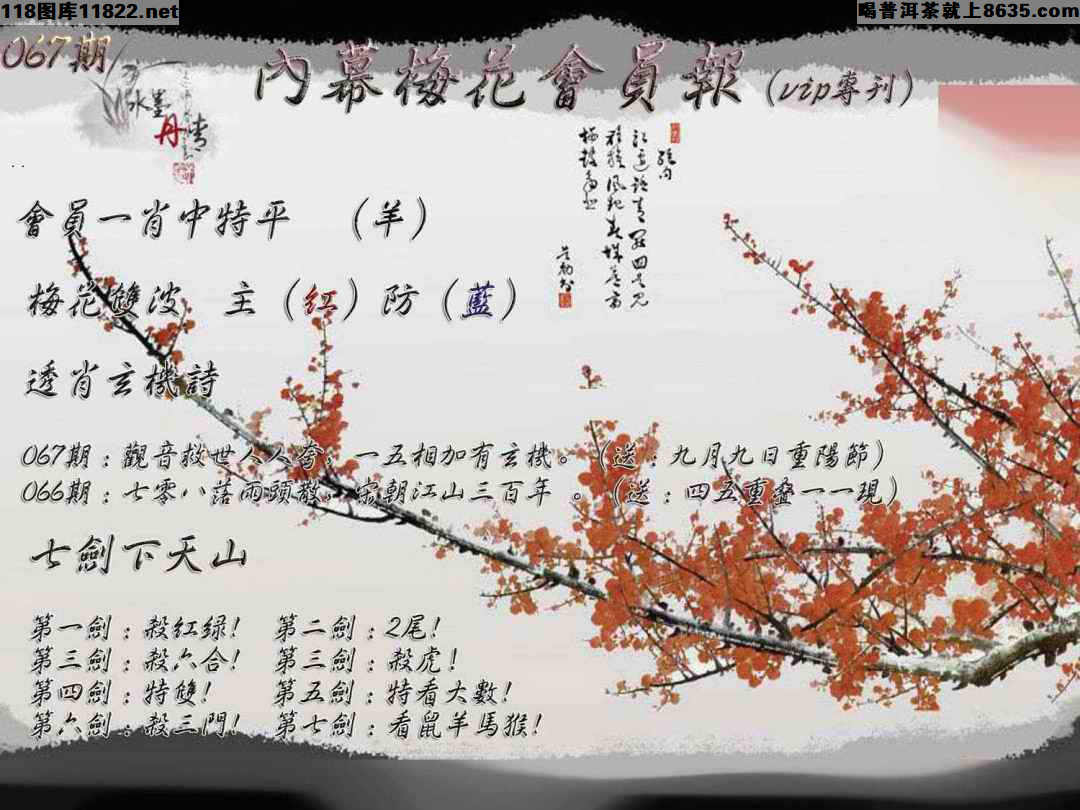 118图库11822.net
喝普洱茶就上8635.com
067期
內幕梅花會員報(vip專刊)
水墨丹青
會員一肖中特平 （羊）
梅花雙波 主（紅）防（藍）
透肖玄機詩
067期：觀音救世人人夸，一五相加有玄機。（送：九月九日重陽節）
066期：七零八落兩頭散，宋朝江山三百年 。（送：四五重叠一一現）
七劍下天山
第一劍：殺紅绿！ 第二劍：2尾！
第三劍：殺六合！ 第三劍：殺虎！
第四劍：特雙！ 第五劍：特看大數！
第六劍：殺三門！ 第七劍：看鼠羊馬猴！